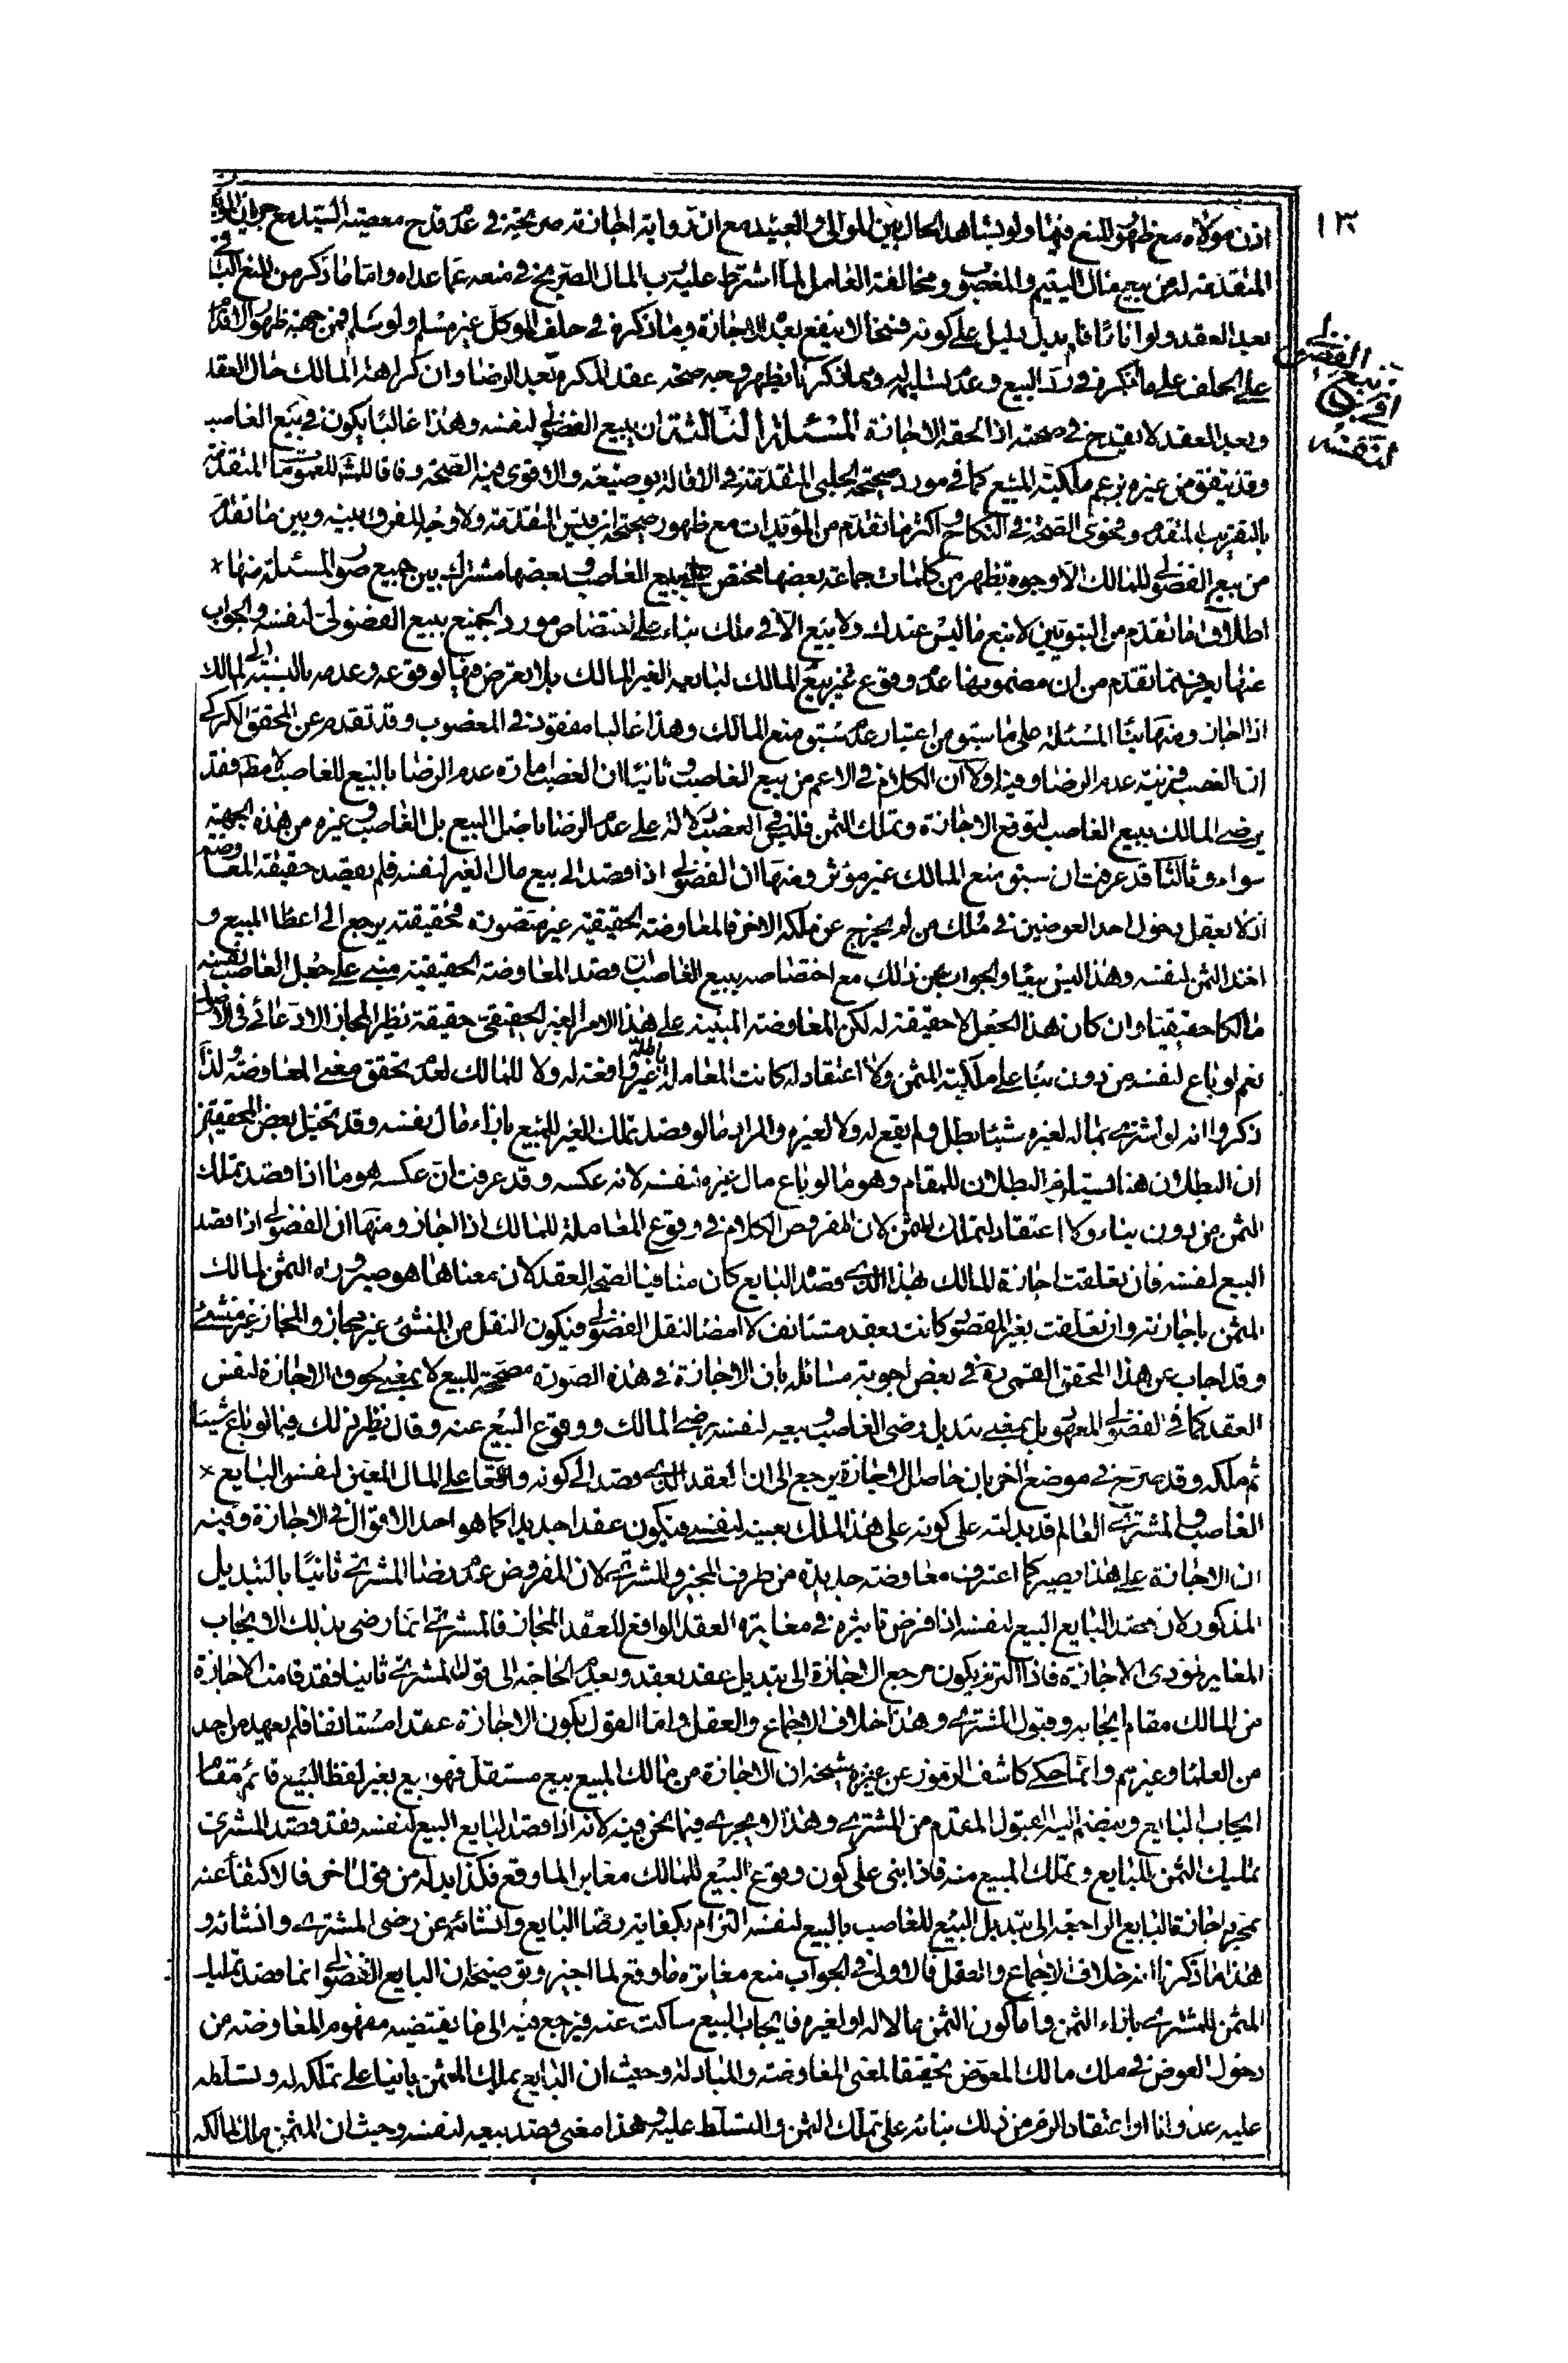 ١٣
في بيع الفضولي لنفسه
اذن مولاه مع ظهور المنع فيها ولو بشاهد الحال بين الموالي والعبيد مع ان رواية اجازته صريحة في عدم قدح معصية السيد مع جريان المؤيدات
المتقدمة له من بيع مال اليتيم والمغصوب ومخالفة العامل لما اشترط عليه رب المال الصريح في منعه عما عداه واما ما ذكر من المنع الباقي
بعد العقد ولو انا ما فلم يدل دليل على كونه فسخا لا ينفع بعده الاجازة وما ذكره في حلف الموكل غير مسلم ولو سلم فمن جهة ظهور الاقدام
على الحلف على ما انكره في رد البيع وعدم تسليمه له ومما ذكرنا يظهر وجه صحة عقد المكره بعد الرضا وان كراهة المالك حال العقد
وبعد العقد لا يقدح في صحته اذا لحقه الاجازة المسئلة الثالثة ان يبيع الفضولي لنفسه وهذا غالبا يكون في بيع الغاصب
وقد يتفق من غيره بزعم ملكية المبيع كما في مورد صحيحة الحلبي المتقدمة في الاقالة بوضيعة والاقوى فيه الصحة وفاقا للمش للعمومات المتقدمة
بالتقريب المتقدم وفحوى الصحة في النكاح واكثر ما تقدم من المؤيدات مع ظهور صحيحة ابن قيس المتقدمة ولا وجه للفرق بينه وبين ما تقدم
من بيع الفضولي للمالك الا وجوه تظهر من كلمات جماعة بعضها مختص ببيع الغاصب وبعضها مشترك بين جميع صور المسئلة منها
اطلاق ما تقدم من النبويين لا تبع ما ليس عندك ولا بيع الا في ملك بناء على اختصاص مورد الجميع ببيع الفضولي لنفسه والجواب
عنها يعرف مما تقدم من ان مضمونها عدم وقوع بيع غير المالك لبايعه الغير المالك بلا تعرض فيها لوقوعه وعدمه بالنسبة الى المالك
اذا اجاز ومنها بناء المسئلة على ما سبق من اعتبار عدم سبق منع المالك وهذا غالبا مفقود في المغصوب وقد تقدم عن المحقق الكركي
ان الغصب قرينة عدم الرضا وفيه اولا ان الكلام في الاعم من بيع الغاصب وثانيا ان الغصب امارة عدم الرضا بالبيع للغاصب لا مطم فقد
يرضى المالك ببيع الغاصب لتوقع الاجازة وتملك الثمن فليس في الغصب دلالة على عدم الرضا باصل البيع بل الغاصب وغيره من هذه الجهة
سواء وثالثا قد عرفت ان سبق منع المالك غير مؤثر ومنها ان الفضولي اذا قصد الى بيع مال الغير لنفسه فلم يقصد حقيقة المعاوضة
اذ لا يعقل دخول احد العوضين في ملك من لم يخرج عن ملكه الاخر فالمعاوضة الحقيقية غير متصورة فحقيقته يرجع الى اعطاء المبيع و
اخذ الثمن لنفسه وهذا ليس بيعا والجواب عن ذلك مع اختصاصه ببيع الغاصب ان قصد المعاوضة الحقيقية مبني على جعل الغاصب نفسه
مالكا حقيقيا وان كان هذا الجعل لا حقيقة له لكن المعاوضة المبنية على هذا الامر الغير الحقيقي حقيقة نظير المجاز الادعائي في الاصول
نعم لو باع لنفسه من دون بناء على ملكية المثمن ولا اعتقاد له كانت المعاملة باطلة غير واقعة له ولا للمالك لعدم تحقق معنى المعاوضة ولذا
ذكروا انه لو اشترى بماله لغيره شيئا بطل ولم يقع له ولا لغيره والمراد ما لو قصد تملك الغير للمبيع بازاء مال نفسه وقد تخيل بعض المحققين
ان البطلان هنا مستلزم البطلان للمقام وهو ما لو باع مال غيره لنفسه لانه عكسه وقد عرفت ان عكسه هو ما اذا قصد تملك
الثمن من دون بناء ولا اعتقاد لتملك المثمن لان المفروض الكلام في وقوع المعاملة للمالك اذا اجاز ومنها ان الفضولي اذا قصد
البيع لنفسه فان تعلقت اجازة المالك بهذا الذي قصده البايع كان منافيا لصحة العقد لان معناها هو صيرورة الثمن لمالك
المثمن باجازته وان تعلقت بغير المقصود كانت بعقد مستانف لا امضاء لنقل الفضولي فيكون النقل من المنشئ غير مجاز والمجاز غير منشئ
وقد اجاب عن هذا المحقق القمي ره في بعض اجوبة مسائله بان الاجازة في هذه الصورة مصححة للبيع لا بمعنى لحوق الاجازة لنفس
العقد كما في الفضولي المعهود بل بمعنى تبديل رضى الغاصب وبيعه لنفسه برضى المالك ووقوع البيع عنه وقال نظير ذلك فيما لو باع شيئا
ثم ملكه وقد صرح في موضع اخر بان حاصل الاجازة يرجع الى ان العقد الذي قصد الى كونه واقعا على المال المعين لنفس البايع
الغاصب والمشتري العالم قد بدلته على كونه على هذا الملك بعينه لنفسي فيكون عقدا جديدا كما هو احد الاقوال في الاجازة وفيه
ان الاجازة على هذا يصير كما اعترف معاوضة جديدة من طرف المجيز والمشتري لان المفروض عدم رضا المشتري ثانيا بالتبديل
المذكور لان قصد البايع البيع لنفسه اذا فرض تاثيره في مغايرة العقد الواقع للعقد المجاز فالمشتري انما رضي بذلك الايجاب
المغاير لمؤدى الاجازة فاذا التزم بكون مرجع الاجازة الى تبديل عقد بعقد وبعدم الحاجة الى قبول المشتري ثانيا فقد قامت الاجازة
من المالك مقام ايجابه وقبول المشتري وهذا خلاف الاجماع والعقل واما القول بكون الاجازة عقدا مستانفا فلم يعهد من احد
من العلماء وغيرهم وانما حكي كاشف الرموز عن شيخه ان الاجازة من مالك المبيع بيع مستقل فهو بيع بغير لفظ البيع قائم مقام
ايجاب البايع وينضم اليه القبول المتقدم من المشتري وهذا لا يجري فيما نحن فيه لانه اذا قصد البايع البيع لنفسه فقد قصد المشتري
تمليك الثمن للبايع وتملك المبيع منه فاذا ابنى على كون وقوع البيع للمالك مغايرا لما وقع فكذا بد له من قبول اخر فالاكتفاء عنه
بمجرد اجازة البايع الراجعة الى تبديل البيع للغاصب بالبيع لنفسه التزام بكفاية رضا البايع وانشائه عن رضى المشتري وانشائه و
هذا ما ذكرنا انه خلاف الاجماع والعقل فالاولى في الجواب منع مغايرة ما وقع لما اجيز وتوضيحه ان البايع الفضولي انما قصد تمليك
المثمن للمشتري بازاء الثمن واما كون الثمن مالا له او لغيره فايجاب البيع ساكت عنه فيرجع فيه الى ما يقتضيه مفهوم المعاوضة من
دخول العوض في ملك مالك المعوض تحقيقا لمعنى المعاوضة والمبادلة وحيث ان البايع يملك المثمن بانيا على تملكه له وتسلطه
عليه عدوانا او اعتقادا لزم من ذلك بنائه على تملك الثمن والتسلط عليه وهذا معنى قصد بيعه لنفسه وحيث ان المثمن ملك لمالكه